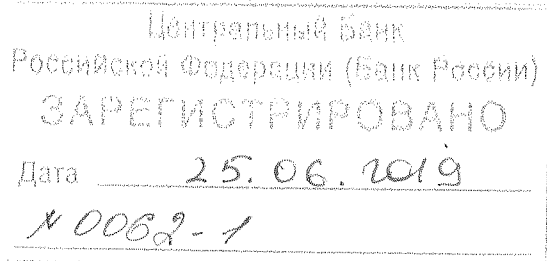 Центральный Банк
Российской Федерации (Банк России)
ЗАРЕГИСТРИРОВАНО
Дата 25.06.2019
№ 0062-1